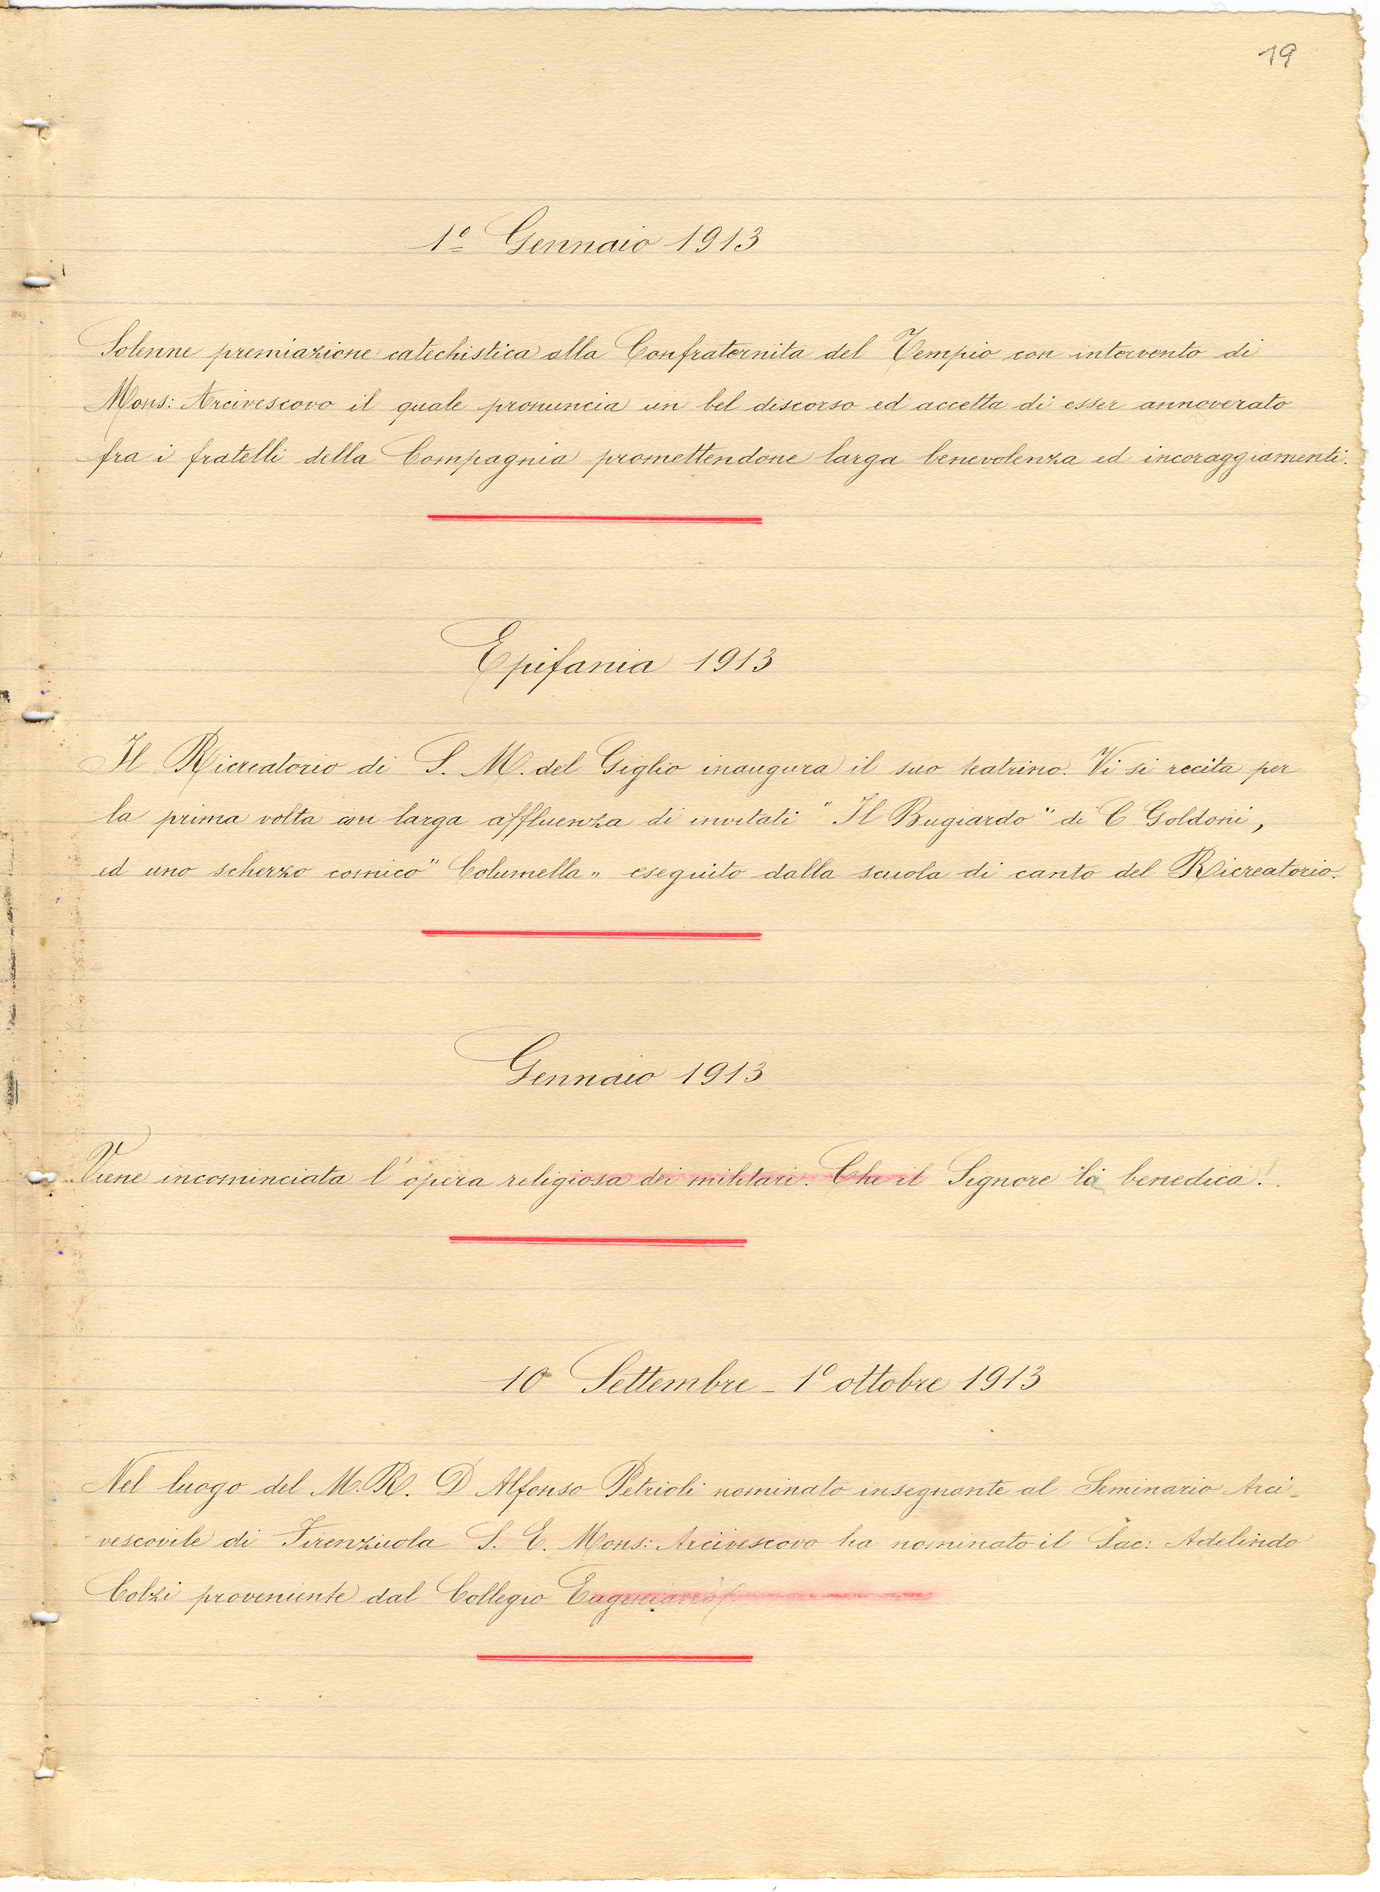 19
1º Gennaio 1913
Solenne premiazione catechistica alla Confraternita del Tempio con intervento di
Mons: Arcivescovo il quale pronuncia un bel discorso ed accetta di esser annoverato
fra i fratelli della Compagnia promettendone larga benevolenza ed incoraggiamenti.
Epifania 1913
Il Ricreatorio di S. M. del Giglio inaugura il suo teatrino. Vi si recita per
la prima volta con larga affluenza di invitati " Il Bugiardo " di C. Goldoni,
ed uno scherzo comico " Columella „ eseguito dalla scuola di canto del Ricreatorio.
Gennaio 1913
Viene incominciata l'opera religiosa dei militari. Che il Signore la benedica!
10 Settembre - 1º ottobre 1913
Nel luogo del M. R. D Alfonso Petrioli nominato insegnante al Seminario Arci-
vescovile di Firenzuola S. E. Mons: Arcivescovo ha nominato il Sac: Adelindo
Colzi proveniente dal Collegio Eugeniano